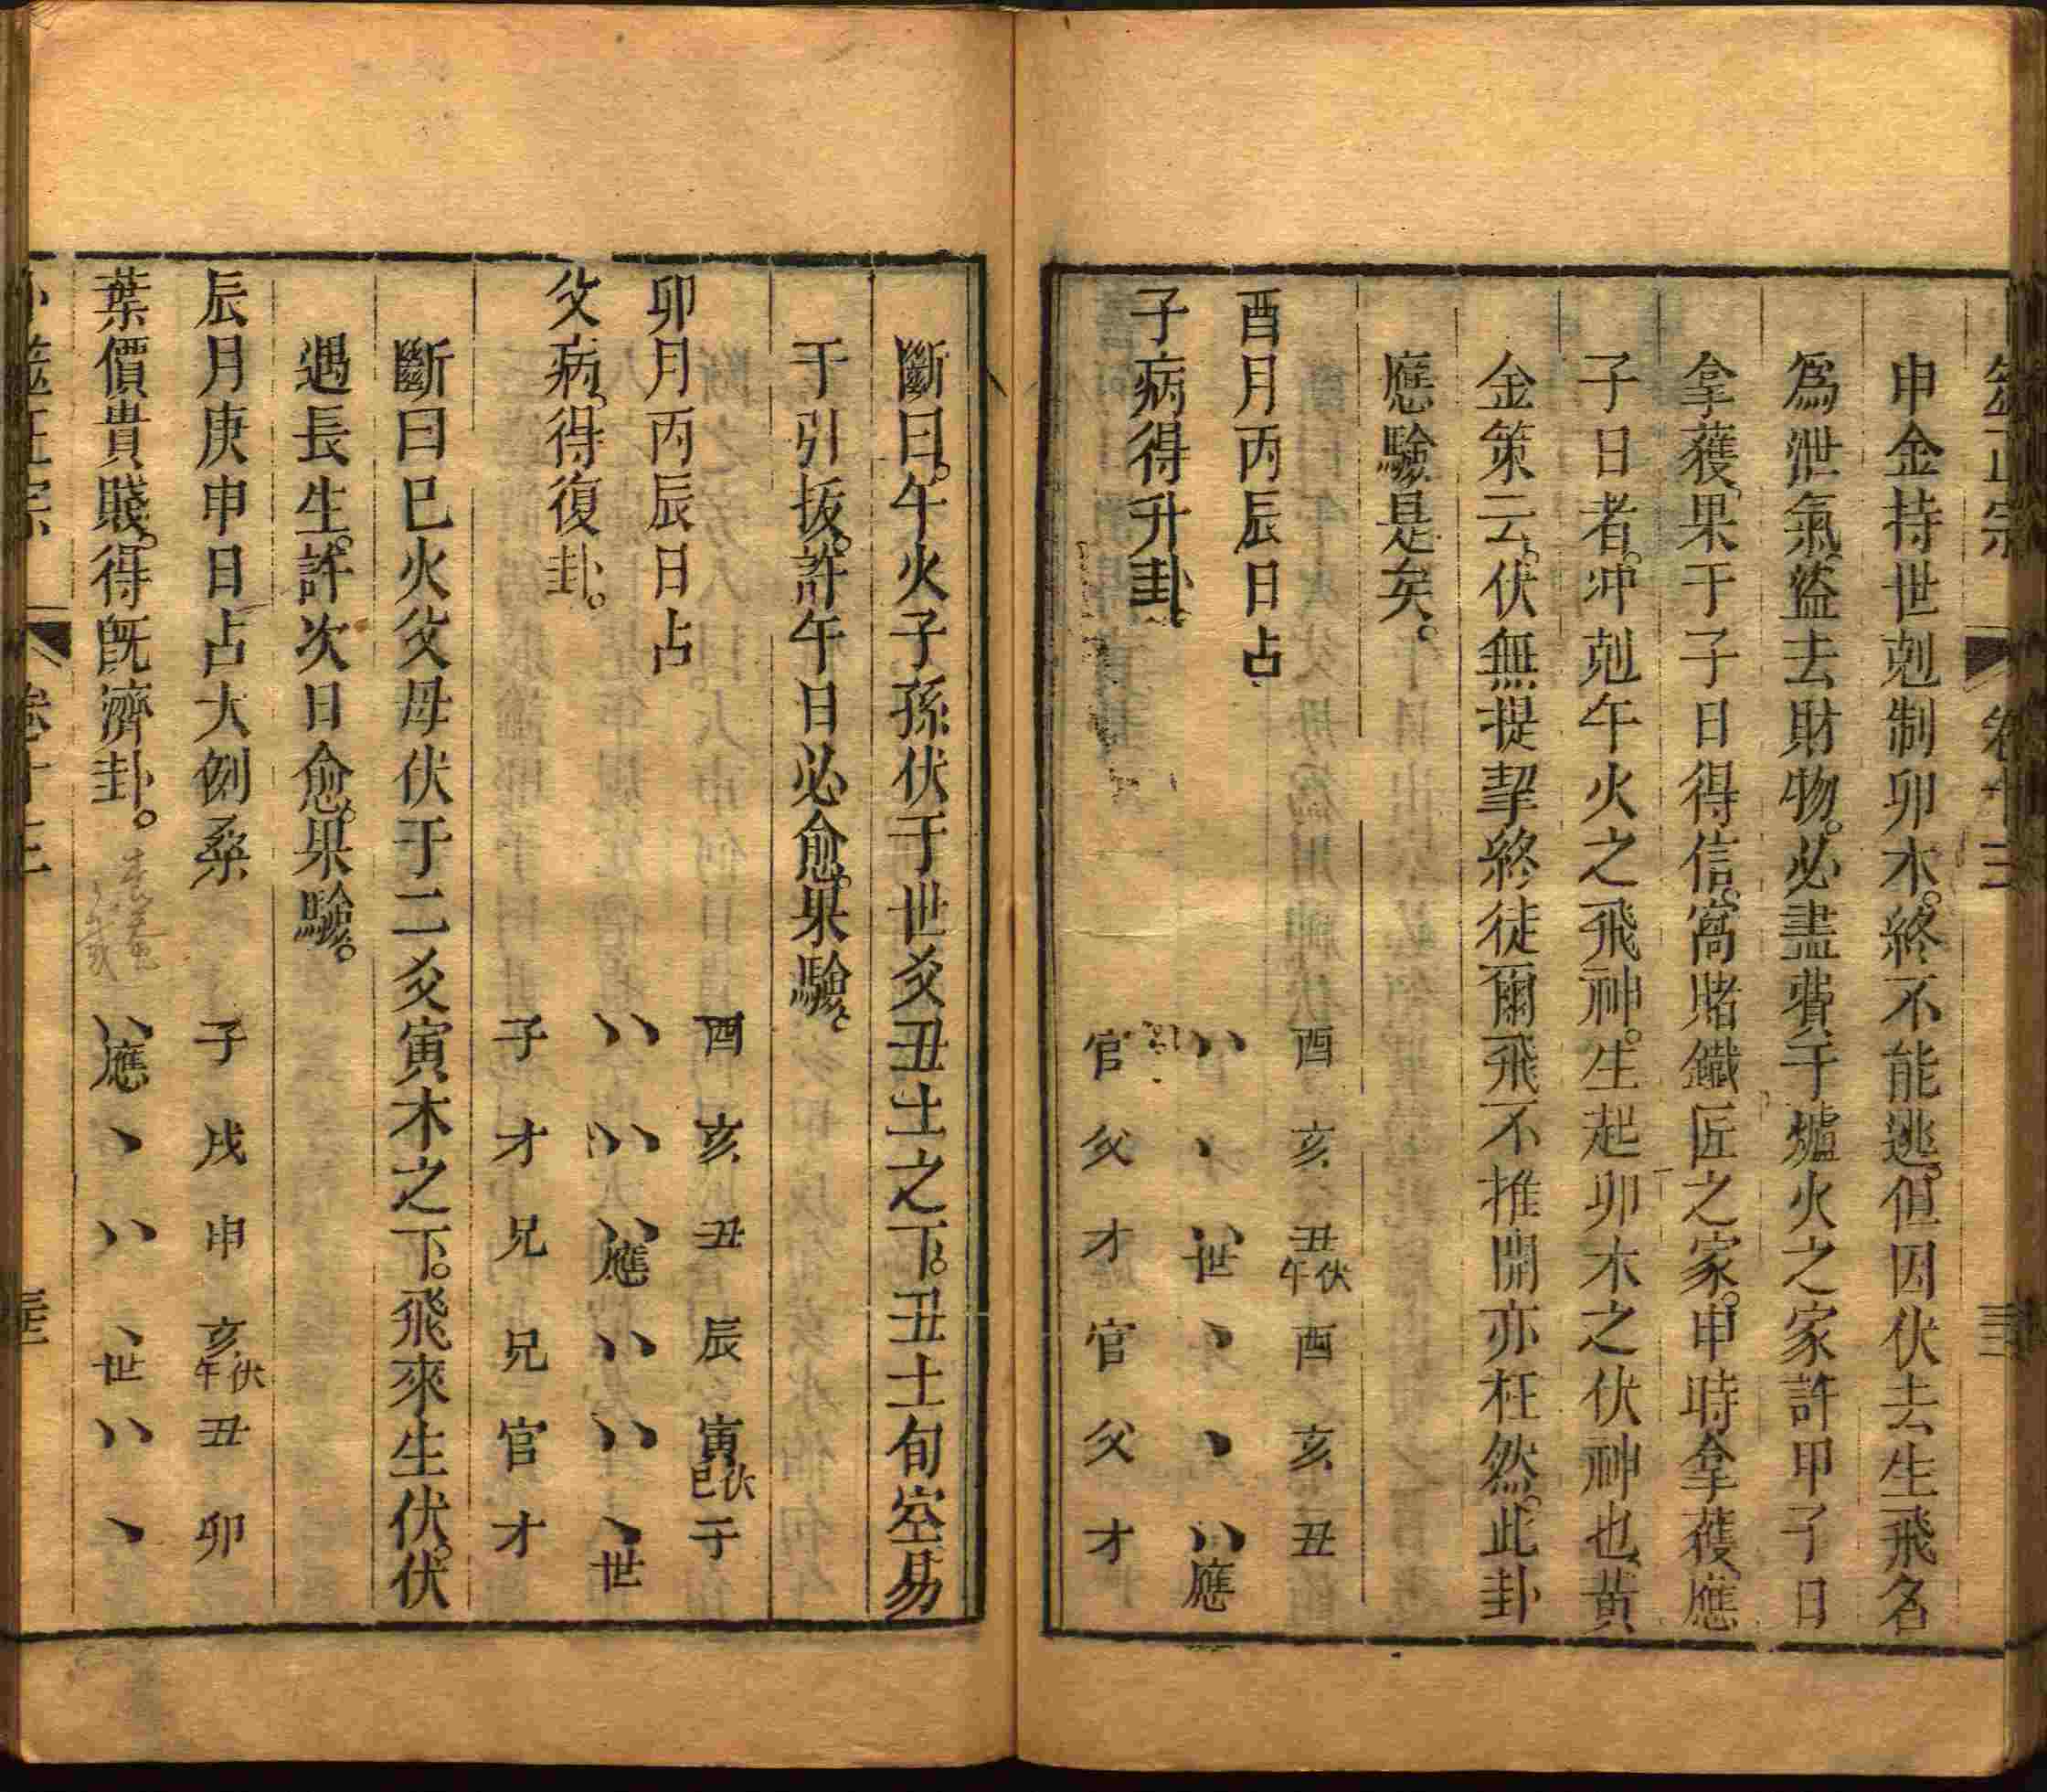 卷十三
申金持世剋制卯木。終不能逃。但因伏去生飛名
為泄氣、盜去財物。必盡費于爐火之家許甲子日
拿獲、果于子日得信。窩賭鐵匠之家。申時拿獲、應
子日者。冲剋午火之飛神。生起卯木之伏神也、黃
金策云。伏無提挈終徒爾飛不推開亦枉然。此卦
應驗是矣。
酉月丙辰日占 酉 亥 丑伏午 酉 亥 丑
子病得升卦。 〵〵 〵 〵〵世 〵 〵 〵〵應
官 父 才 官 父 才
斷曰。午火子孫伏于世爻丑土之下。丑土旬空易
于引拔。許午日必愈。果驗。
卯月丙辰日占 酉 亥 丑 辰 寅伏巳 子
父病。得復卦。 〵〵 〵〵 〵〵應 〵〵 〵〵 〵世
子 才 兄 兄 官 才
斷曰巳火父母伏于二爻寅木之下。飛來生伏。伏
遇長生。許次日愈。果驗。
辰月庚申日占大例桑 子 戌 申 亥伏午 丑 卯
葉價貴賤。得旣濟卦。 〵〵應 〵 〵〵 〵世 〵〵 〵
卜筮正宗 卷十三